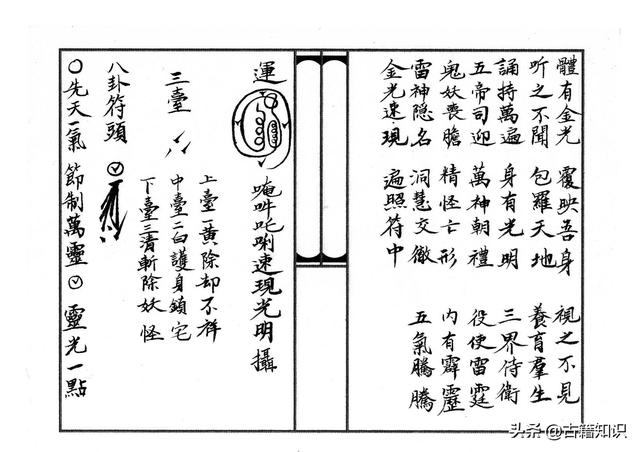 體有金光 覆映吾身 視之不見
聽之不聞 包羅天地 養育羣生
誦持萬遍 身有光明 三界待衛
五帝司迎 萬神朝禮 役使雷霆
鬼妖喪膽 精怪亡形 內有霹靂
雷神隐名 洞慧交徹 五氣騰騰
金光速現 遍照符中
運 唵吽吒唎速現光明攝
三臺
上臺一黃除却不祥
中臺二白護身鎖宅
下臺三清斬除妖怪
八卦符頭
○先天一氣 節制萬靈 靈光一點
头条 @古籍知识